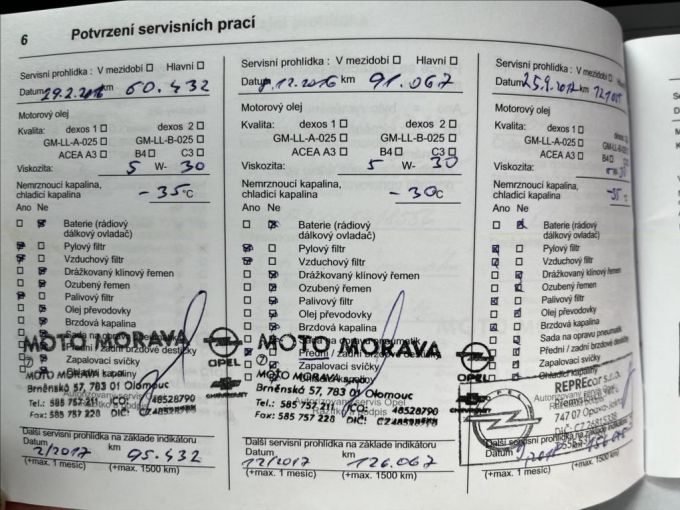 6 Potvrzení servisních prací
Servisní prohlídka : V mezidobí Hlavní
Datum 29.2.2016 km 60.432
Motorový olej
Kvalita: dexos 1 dexos 2
GM-LL-A-025 GM-LL-B-025
ACEA A3 B4 C3
Viskozita: 5 W- 30
Nemrznoucí kapalina,
chladicí kapalina -35 °C
Ano Ne
Baterie (rádiový
dálkový ovladač)
Pylový filtr
Vzduchový filtr
Drážkovaný klínový řemen
Ozubený řemen
Palivový filtr
Olej převodovky
Brzdová kapalina
Sada na opravu pneumatik
Přední / zadní brzdové destičky
Zapalovací svíčky
MOTO MORAVA
OPEL
MOTO MORAVA
Brněnská 57, 783 01 Olomouc
Tel.: 585 757 211
Fax: 585 757 228 DIČ:
48528790
CHEVROLET
Další servisní prohlídka na základě indikátoru
Datum 2/2017 km 95.432
(+max. 1 měsíc) (+max. 1500 km)
Servisní prohlídka : V mezidobí Hlavní
Datum 12.2016 km 91.067
Motorový olej
Kvalita: dexos 1 dexos 2
GM-LL-A-025 GM-LL-B-025
ACEA A3 B4 C3
Viskozita: 5 W- 30
Nemrznoucí kapalina,
chladicí kapalina -30 °C
Ano Ne
Baterie (rádiový
dálkový ovladač)
Pylový filtr
Vzduchový filtr
Drážkovaný klínový řemen
Ozubený řemen
Palivový filtr
Olej převodovky
Brzdová kapalina
Přední / zadní brzdové destičky
MOTO MORAVA
MOTO MORAVA
Brněnská 57, 783 01 Olomouc
Autorizovaný servis Opel
Razítko a podpis
Tel.: 585 757 211
Fax: 585 757 228 DIČ:
48528790
CHEVROLET
Další servisní prohlídka na základě indikátoru
Datum 12/2017 km 126.067
(+max. 1 měsíc) (+max. 1500 km)
Servisní prohlídka : V mezidobí Hlavní
Datum 25.9.2017 km
Motorový olej
Kvalita: dexos 1 dexos 2
GM-LL-A-025 GM-LL-B-025
ACEA A3 B4 C3
Viskozita: W-
Nemrznoucí kapalina,
chladicí kapalina -35 °C
Ano Ne
Baterie (rádiový
dálkový ovladač)
Pylový filtr
Vzduchový filtr
Drážkovaný klínový řemen
Ozubený řemen
Palivový filtr
Olej převodovky
Brzdová kapalina
Sada na opravu pneumatik
Přední / zadní brzdové destičky
Zapalovací svíčky
Chladicí kapaliny
REPREcar s.r.o.
747 07 Opava
OPEL
Další servisní prohlídka na základě indikátoru
Datum km
(+max. 1 měsíc) (+max. 1500 km)